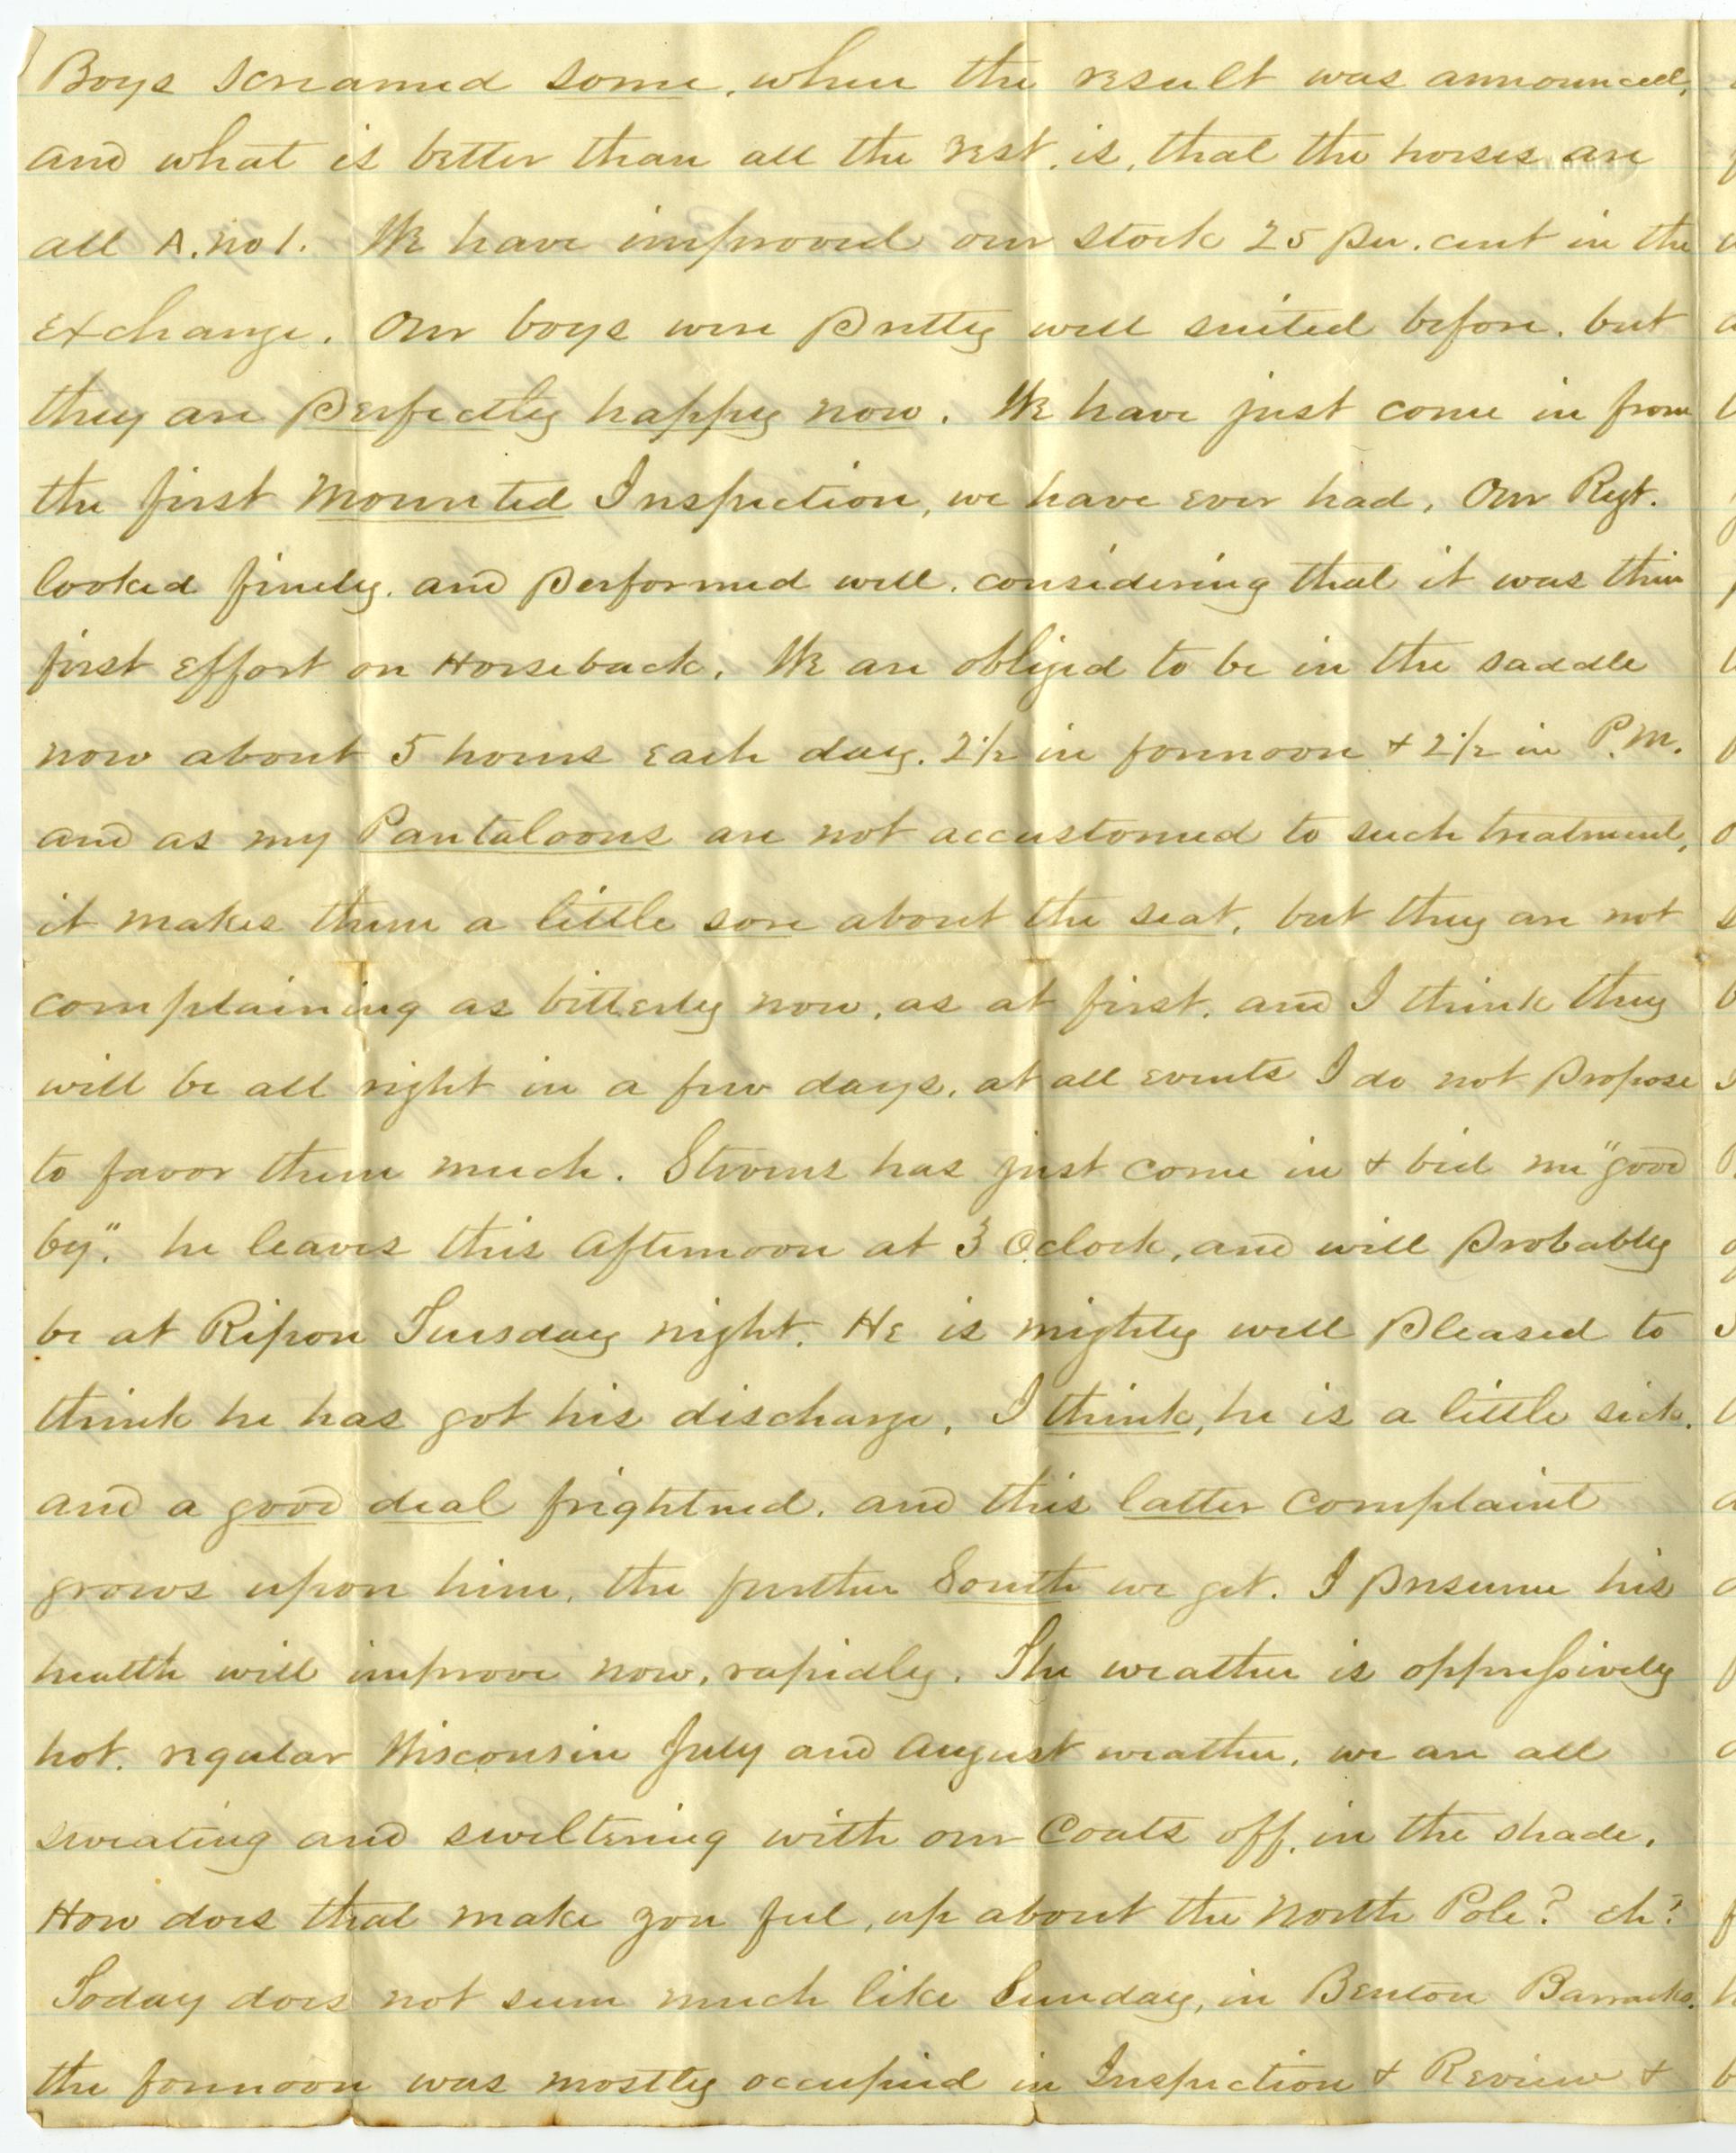 Boys screamed some, when the result was announced,
and what is better than all the rest, is, that the horses are
all A. no 1. We have improved our stock 25 per. cent in the
Exchange. Our boys were Pretty well suited before, but
they are Perfectly happy now. We have just come in from
the first Mounted Inspection, we have ever had, Our Regt.
looked finely, and Performed well, considering that it was their
first Effort on Horseback. We are obliged to be in the saddle
now about 5 hours Each day. 2 1/2 in forenoon & 2 1/2 in P.M.
and as my Pantaloons are not accustomed to such treatment,
it makes them a little sore about the seat, but they are not
complaining as bitterly now, as at first, and I think they
will be all right in a few days, at all events I do not Propose
to favor them much. Stevens has just come in & bid me "good
by". he leaves this afternoon at 3 Oclock, and will Probably
be at Ripon Tuesday night. He is mighty well Pleased to
think he has got his discharge, I think, he is a little sick,
and a good deal frightned, and this latter Complaint
grows upon him, the further South we get. I Presume his
health will improve now, rapidly. The weather is oppressively
hot, regular Wisconsin July and August weather, we are all
sweating and sweltering with our Coats off, in the shade.
How does that make you feel, up about the North Pole? eh?
Today does not seem much like Sunday, in Benton Barracks.
the forenoon was mostly occupied in Inspection & Review &